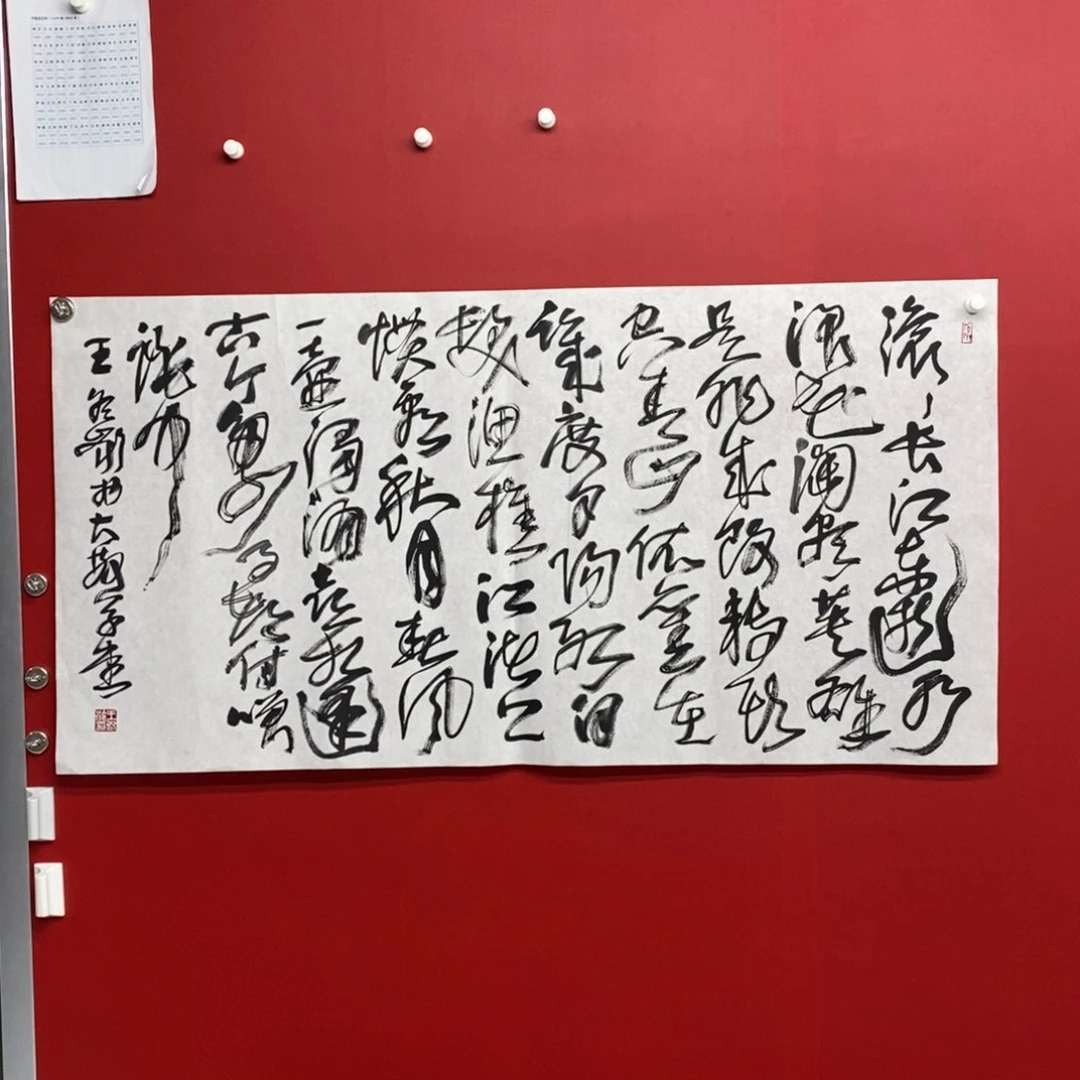 滚滚长江东逝水
浪花淘尽英雄
是非成败转头
空青山依旧在
几度夕阳红白
发渔樵江渚上
惯看秋月春风
一壶浊酒喜相逢
古今多少事都付笑
谈中
王冬龄